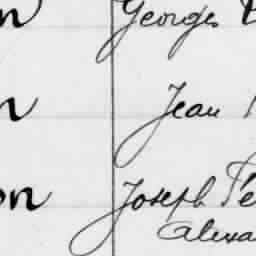 Georges
Jean
Joseph Pé
Alexa